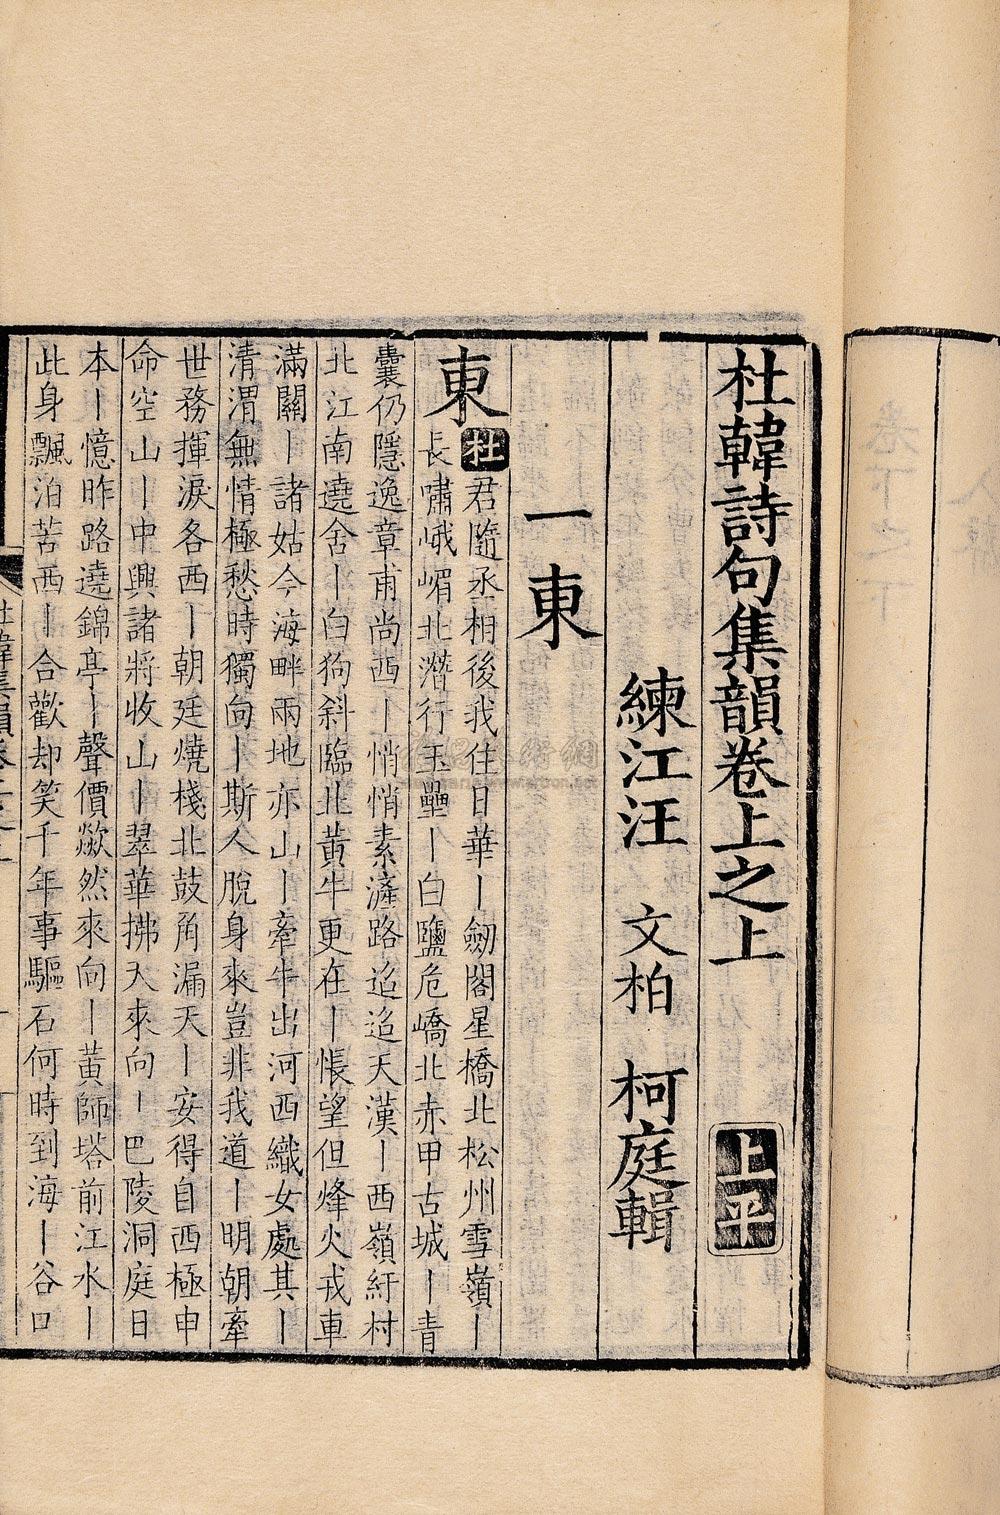 杜韓詩句集韻卷上之上
上平
練江汪 文柏 柯庭輯
一東
東
杜
君隨丞相後我住日華丨劒閣星橋北松州雪嶺丨
長嘯峨嵋北潛行玉壘丨白鹽危嶠北赤甲古城丨青
囊仍隱逸章甫尚西丨悄悄素滻路迢迢天漢丨西嶺紆村
北江南遶舍丨白狗斜臨北黄牛更在丨悵望但烽火戎車
滿關丨諸姑今海畔兩地亦山丨牽牛出河西織女處其丨
清渭無情極愁時獨向丨斯人脫身來豈非我道丨明朝牽
世務揮淚各西丨朝廷燒棧北鼓角漏天丨安得自西極申
命空山丨中興諸將收山丨翠華拂天來向丨巴陵洞庭日
本丨憶昨路遶錦亭丨聲價歘然來向丨黄師塔前江水丨
此身飄泊苦西丨合歡却笑千年事驅石何時到海丨谷口